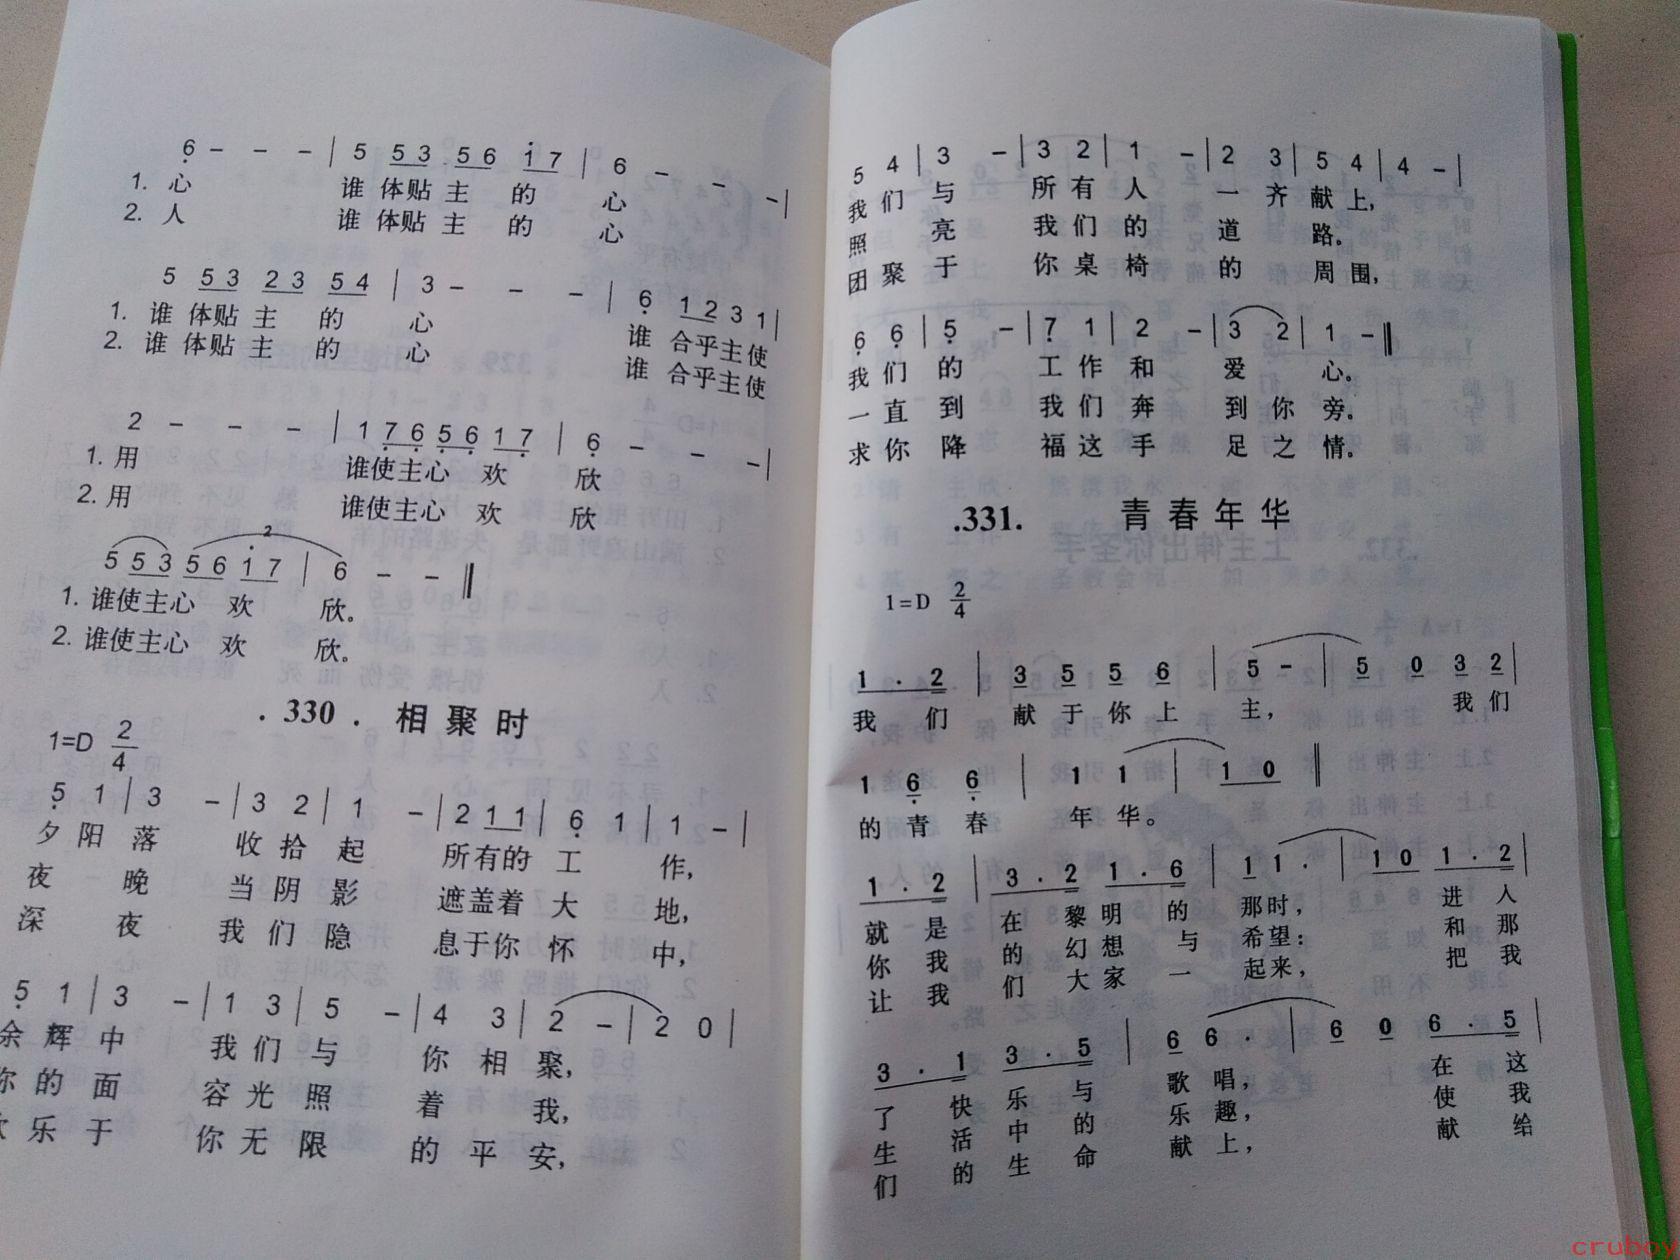 6 - - - | 5 5 3 5 6 1 7 | 6 - - - |
1. 心 谁 体贴 主 的 心
2. 人 谁 体贴 主 的 心
5 5 3 2 3 5 4 | 3 - - - | 6 1 2 3 1 |
1. 谁 体贴 主 的 心 谁 合乎主使
2. 谁 体贴 主 的 心 谁 合乎主使
2 - - - | 1 7 6 5 6 1 7 | 6 - - - |
1. 用 谁使主心 欢 欣
2. 用 谁使主心 欢 欣
2
5 5 3 5 6 1 7 | 6 - - ‖
1. 谁使主心 欢 欣。
2. 谁使主心 欢 欣。
. 330 . 相聚时
1=D 2/4
5 1 | 3 - | 3 2 | 1 - | 2 1 1 | 6 1 | 1 - |
夕 阳 落 收 拾 起 所有的 工 作,
夜 晚 当 阴 影 遮盖着 大 地,
深 夜 我 们 隐 息于你 怀 中,
5 1 | 3 - | 1 3 | 5 - | 4 3 | 2 - | 2 0 |
余 辉 中 我 们 与 你 相 聚,
你 的 面 容 光 照 着 我,
乐 于 你 无 限 的 平 安,
5 4 | 3 - | 3 2 | 1 - | 2 3 | 5 4 | 4 - |
我 们 与 所 有 人 一 齐 献 上,
照 亮 我 们 的 道 路。
团 聚 于 你 桌 椅 的 周 围,
6 6 | 5 - | 7 1 | 2 - | 3 2 | 1 - ‖
我 们 的 工 作 和 爱 心。
一 直 到 我 们 奔 到 你 旁。
求 你 降 福 这 手 足 之 情。
.331. 青 春 年 华
1=D 2/4
1 . 2 | 3 5 5 6 | 5 - | 5 0 3 2 |
我 们 献 于 你 上 主, 我 们
1 6 6 | 1 1 | 1 0 ‖
的 青 春 年 华。
1 . 2 | 3 . 2 1 . 6 | 1 1 . | 1 0 1 . 2 |
就 是 在 黎 明 的 那时, 进 入
你 我 的 幻 想 与 希望: 和 那
让 我 们 大 家 一 起来, 把 我
3 . 1 3 . 5 | 6 6 . | 6 0 6 . 5 |
了 快 乐 与 歌 唱, 在 这
生 活 中 的 乐 趣, 使 我
们 的 生 命 献 上, 献 给
cruboy